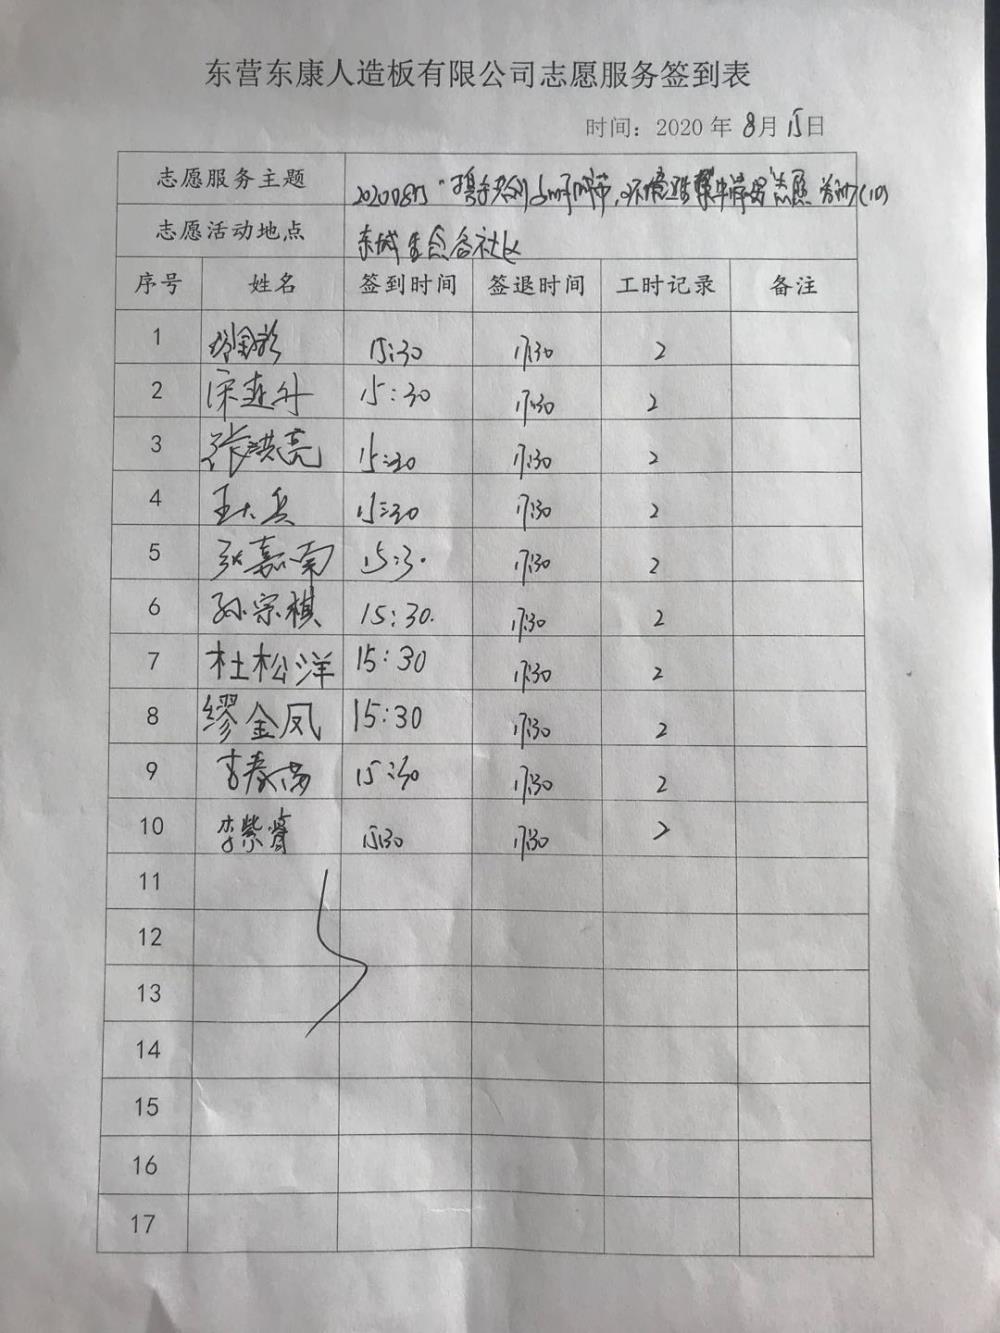 东营东康人造板有限公司志愿服务签到表
时间：2020 年 8月 15日
志愿服务主题 20200815 志愿 (10)
志愿活动地点 东城 社区
序号 姓名 签到时间 签退时间 工时记录 备注
1 15:30 17:30 2
2 15:30 17:30 2
3 张洪亮 15:30 17:30 2
4 王大兵 15:30 17:30 2
5 张嘉南 15:30 17:30 2
6 孙宗棋 15:30. 17:30 2
7 杜松洋 15:30 17:30 2
8 缪金凤 15:30 17:30 2
9 李春 15:30 17:30 2
10 李紫 15:30 17:30 2
11
12
13
14
15
16
17